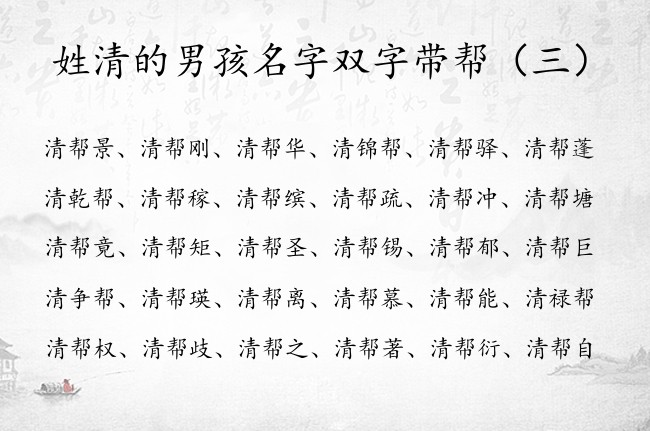 姓清的男孩名字双字带帮（三）
清帮景、清帮刚、清帮华、清锦帮、清帮驿、清帮蓬
清乾帮、清帮稼、清帮缤、清帮疏、清帮冲、清帮塘
清帮竟、清帮矩、清帮圣、清帮锡、清帮郁、清帮巨
清争帮、清帮瑛、清帮离、清帮慕、清帮能、清禄帮
清帮权、清帮歧、清帮之、清帮著、清帮衍、清帮自